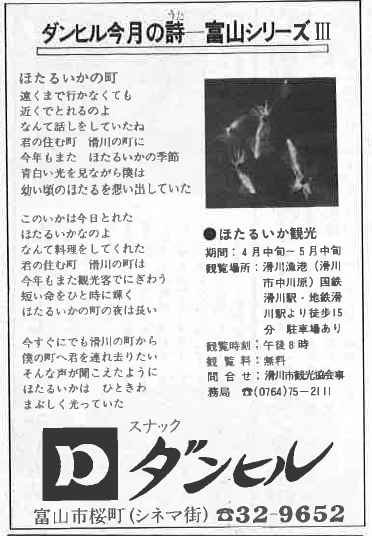 うた
ダンヒル今月の詩─富山シリーズⅢ
ほたるいかの町
遠くまで行かなくても
近くでとれるのよ
なんて話しをしていたね
君の住む町　滑川の町に
今年もまた　ほたるいかの季節
青白い光を見ながら僕は
幼い頃のほたるを想い出していた
このいかは今日とれた
ほたるいかなのよ
なんて料理をしてくれた
君の住む町　滑川の町は
今年もまた観光客でにぎわう
短い命をひと時に輝く
ほたるいかの町の夜は長い
今すぐにでも滑川の町から
僕の町へ君を連れ去りたい
そんな声が聞こえたように
ほたるいかは　ひときわ
まぶしく光っていた
●ほたるいか観光
期間：4月中旬〜5月中旬
観覧場所：滑川漁港（滑川
市中川原）国鉄
滑川駅・地鉄滑
川駅より徒歩15
分　駐車場あり
観覧時刻：午後8時
観覧料：無料
問合せ：滑川市観光協会事
務局　☎(0764)75-2111
スナック
D ダンヒル
富山市桜町(シネマ街) ☎32-9652